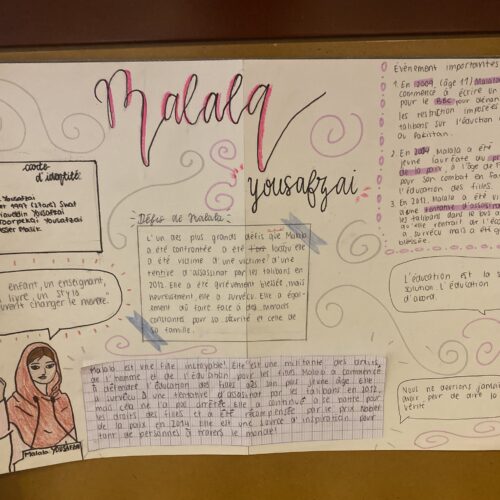 Malala
yousafzai
carte
d'identité:
Yousafzai
1997 (27ans) Swat
Yousafzai
enfant, un enseignant,
livre, un stylo
changer le monde.
Malala Yousafzai
Défis de Malala:
L'un des plus grands défis que Malala
a été confrontée a été lorsqu'elle
a été victime d'une victime d'une
tentive d'assasinat par les talibans en
2012. Elle a été grièvement blessée, mais
heureusement elle a survécu. Elle a égale-
ment dû faire face à des menaces
constantes pour sa sécurité et celle de
sa famille.
Malala est une fille incroyable! Elle est une militante des droits
de l'homme et de l'éducation pour les filles. Malala a commencé
à défendre l'éducation des filles dès son plus jeune âge. Elle
a survécu à une tentative d'assasinat par les talibans en 2012
mais cela ne l'a pas arrêtée. Elle a continué à se battre pour
les droits des filles et a été récompensée par le prix Nobel
de la paix en 2014. Elle est une source d'inspiration pour
tant de personnes à travers le monde!
Évènement importantes
1. En 2009, (âge 11) Malala
commencé à écrire un
pour le BBC pour dénon
les restriction imposées
talibans sur l'éducation
au Pakistan.
2. En 2014 Malala a été
jeune lauréate au
de la paix, à l'âge de
pour son combat en fa
l'éducation des filles.
3. En 2012, Malala a été vi
d'une tentative d'assasina
les talibans dans le bus
qu'elle rentrait de l'éc
a survécu mais a été g
blessée.
L'éducation est la
solution. L'éducation
d'abord.
Nous ne devrions jamais
avoir peur de dire la
vérité